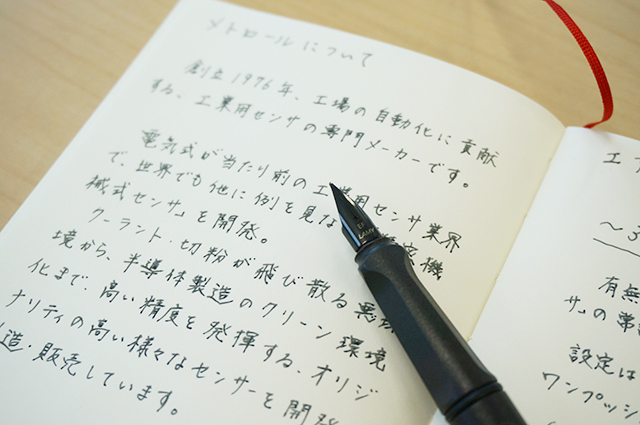 メトロールについて
創立1976年、工場の自動化に貢献
する、工業用センサの専門メーカーです。
電気式が当たり前の工業用センサ業界
で、世界でも他に例を見な 密機
械式センサ」を開発。
クーラント・切粉が飛び散る悪
境から、半導体製造のクリーン環境
化まで、高い精度を発揮する、オリジ
ナリティの高い様々なセンサーを開発
造・販売しています。
LAMY
工
〜
有無
サ」の常
設定は
ワンプッシ